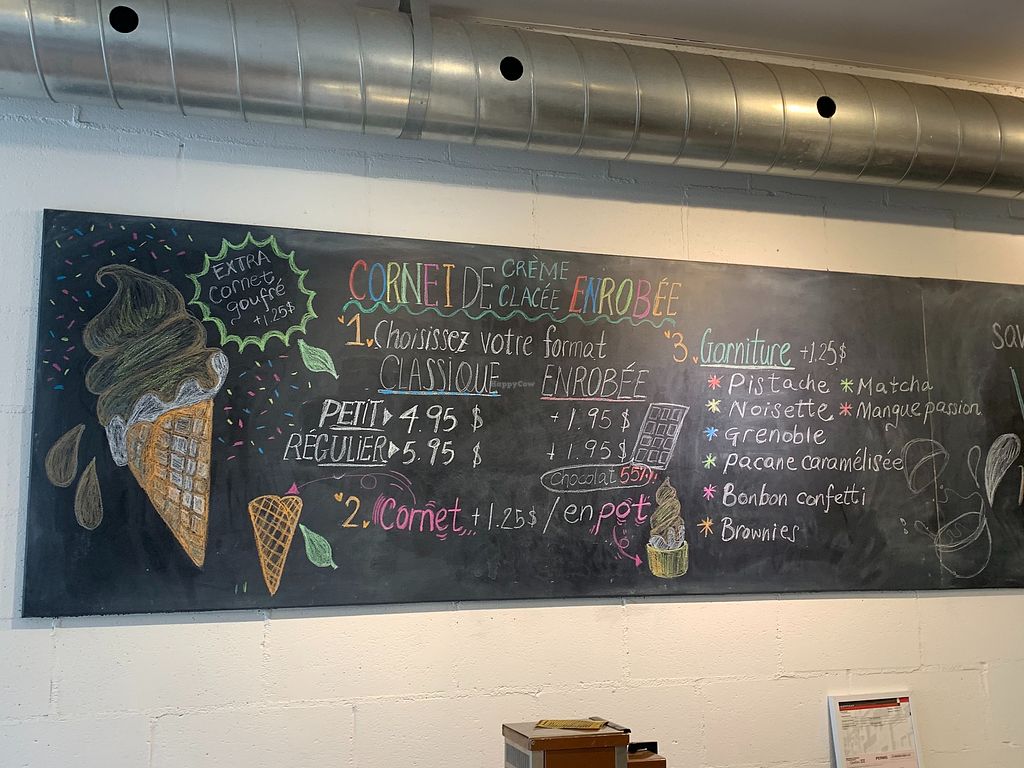 EXTRA
Cornet
gouffré
+1.25$
CORNET DE CRÈME GLACÉE ENROBÉE
1. Choisissez votre format
CLASSIQUE ENROBÉE
PETIT 4.95 $ +1.95 $
RÉGULIER 5.95 $ +1.95 $
Chocolat 55%
2. Cornet +1.25$ / en pot
3. Garniture +1.25$
* Pistache * Matcha
* Noisette * Mangue passion
* Grenoble
* pacane caramélisée
* Bonbon confetti
* Brownies
HappyCow